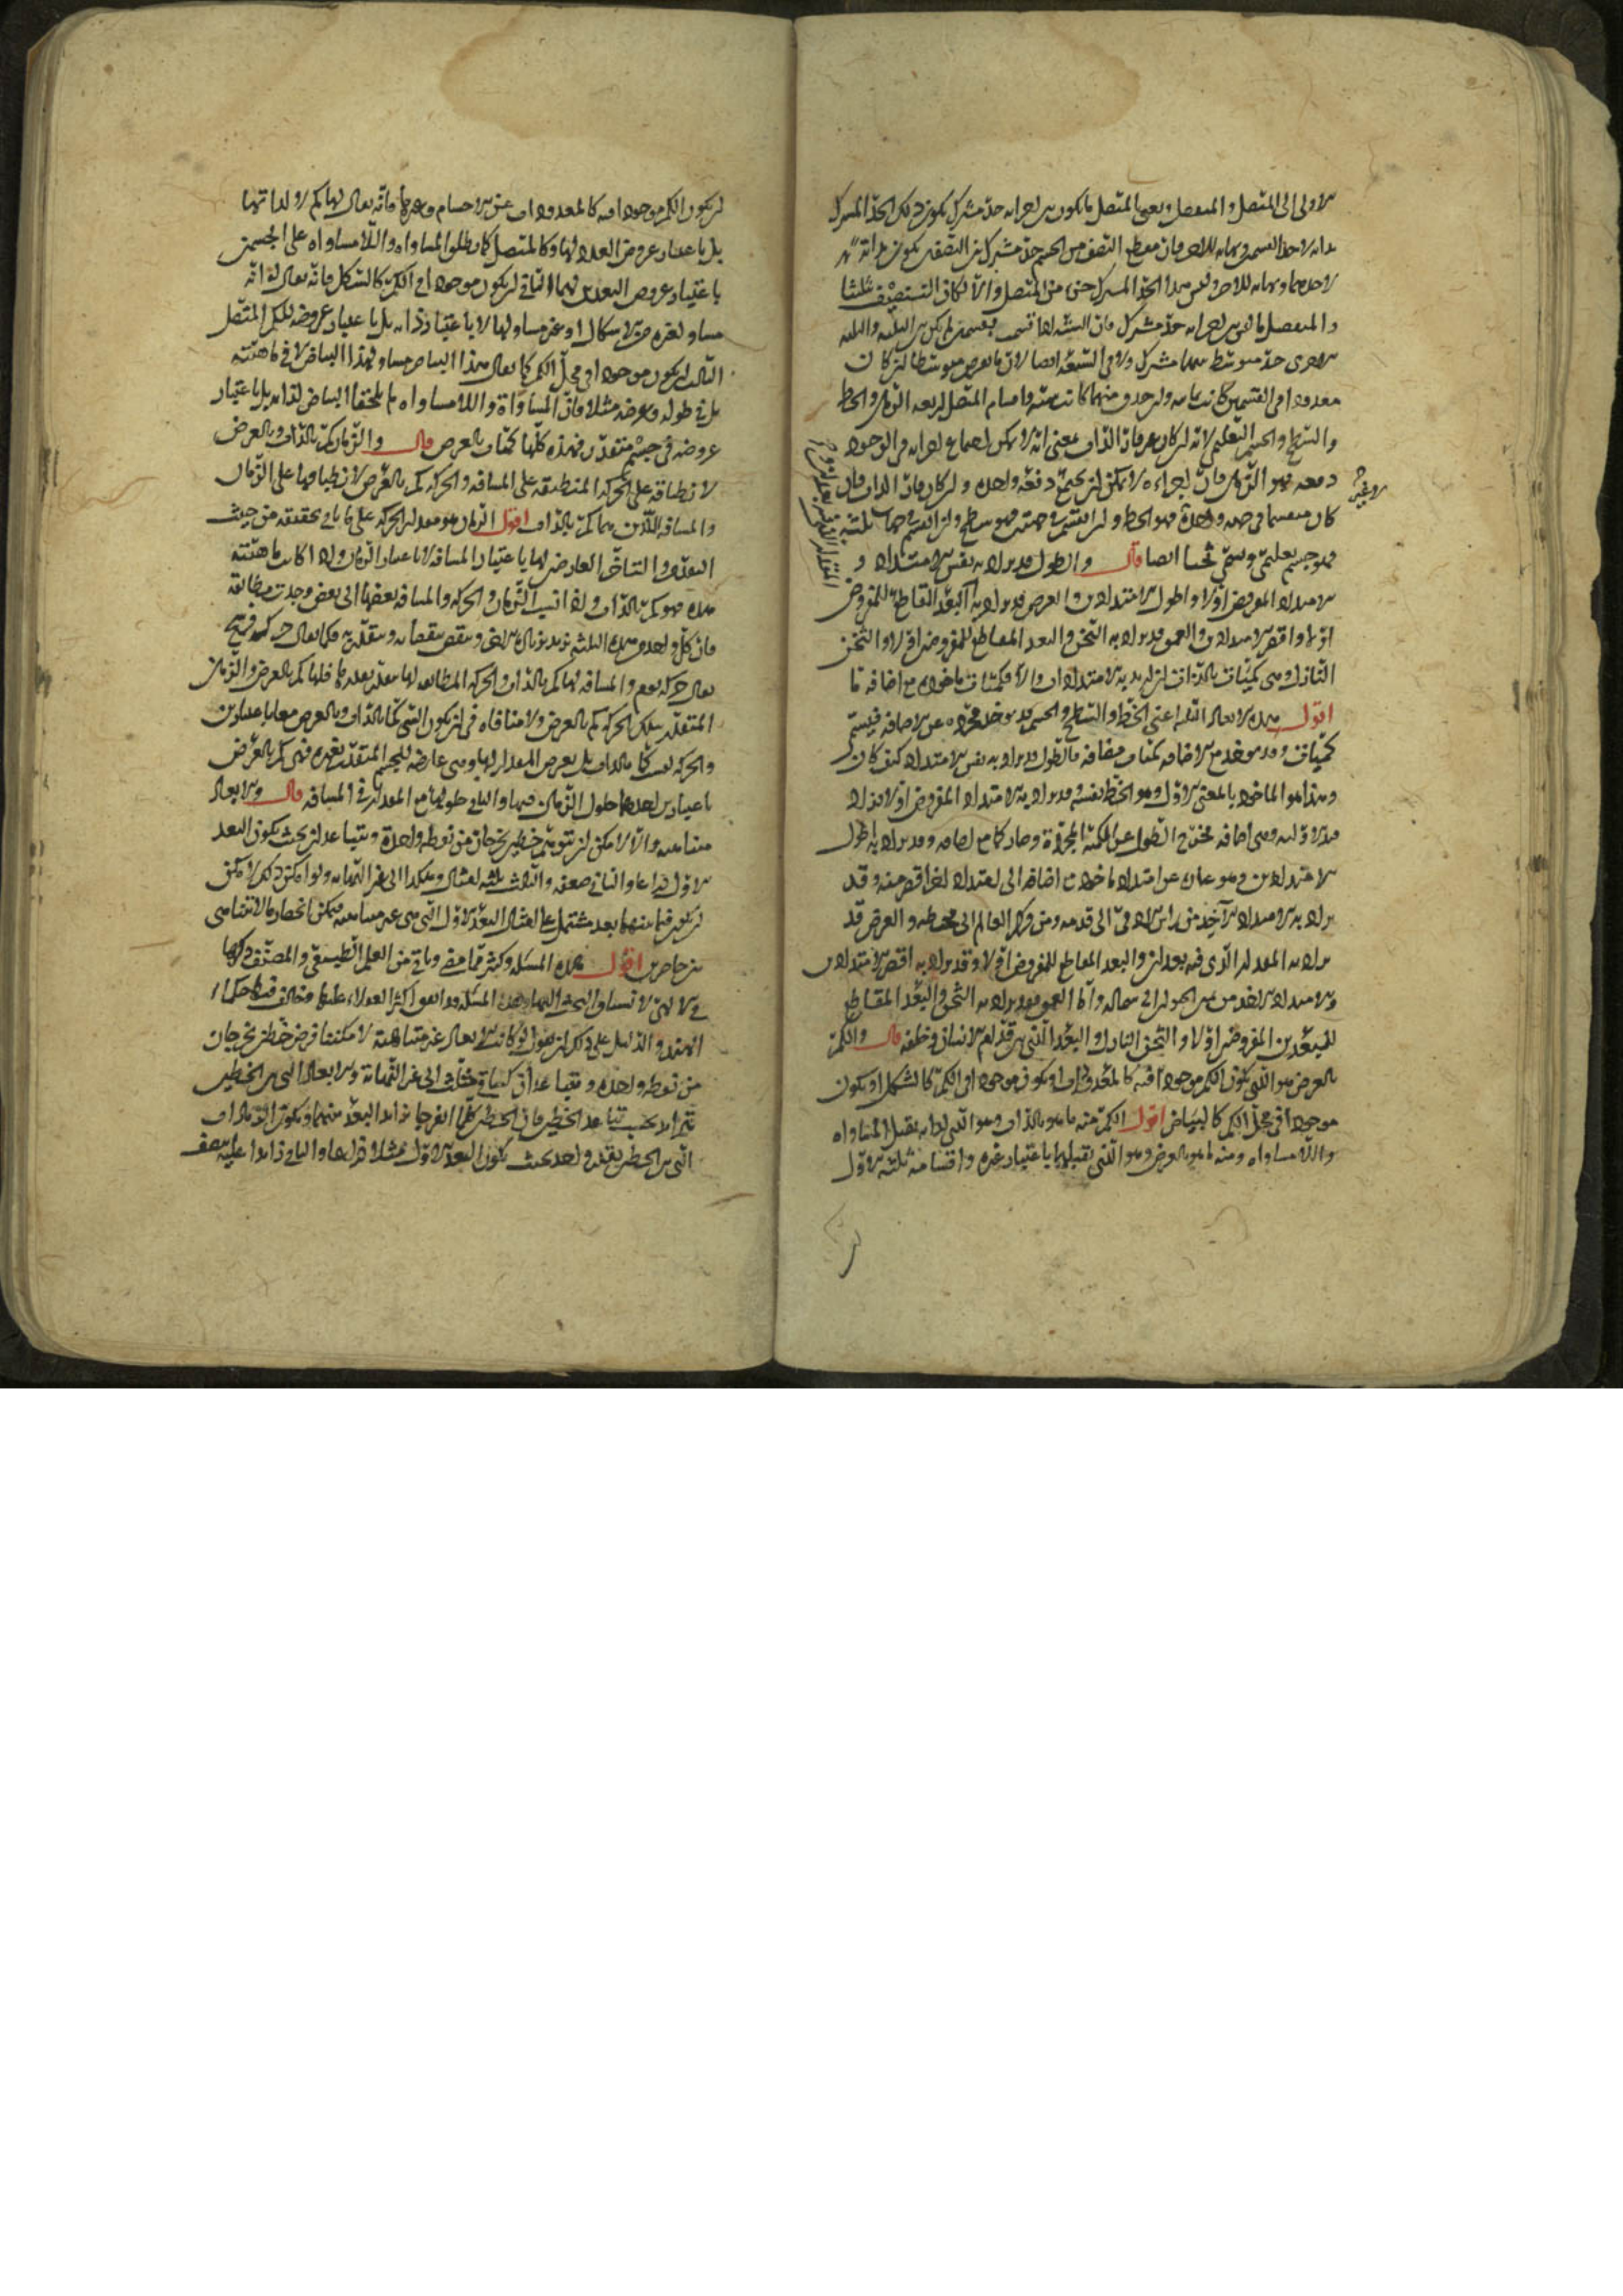 الاولى الى المتصل والمنفصل ويعنى بالمتصل ما يكون بين اجزائه حد مشترك يكون ذلك الحد المشترك
بداية لاحد القسمين ونهاية للاخر فان مقطع النصف من الجسم حد مشترك بين النصفين يكون بداية
لاحدهما ونهاية للاخر وليس هذا الحد المشترك جزء من المتصل والا لكان التنصيف تثليثا
والمنفصل ما ليس بين اجزائه حد مشترك فان الستة اذا قسمت بقسمين لم يكن بين الثلثة والثلثة
الاخرى حد متوسط بينهما مشترك ولا في السبعة ايضا لان ما يفرض متوسطا ان كان
معدودا في القسمين كانت ثمانية وان حذف منهما كانت ستة واقسام المتصل اربعة الزمان والخط
والسطح والجسم التعليمى لانه ان كان غير قار الذات بمعنى انه لا يمكن اجتماع اجزائه في الوجود
دفعة فهو الزمان فان اجزاءه لا يمكن ان تجتمع دفعة واحدة وان كان قار الذات فان
كان منقسما في جهة واحدة فهو الخط وان انقسم في جهتين فهو سطح وان انقسم في جهات ثلثة
فهو جسم تعليمى ويسمى ثخنا ايضا قال والطول قد يراد به نفس الامتداد و
الامتداد المفروض اولا واطول الامتدادين والعرض قد يراد به البعد القاطع للمفروض
اولا واقصر الامتدادين والعمق قد يراد به الثخن والبعد المقاطع للمفروض اولا والثخن
النازل وهى كميات بالذات ان اريد به الامتدادات والا فكميات ماخوذة مع اضافة ما
اقول هذه الابعاد الثلثة اعنى الخط والسطح والجسم قد يوخذ مجردة عن الاضافة فيسمى
كميات وقد يوخذ مع الاضافة كميات مضافة فالطول قد يراد به نفس الامتداد كيف كان
وهذا هو الماخوذ بالمعنى الاول وهو الخط نفسه وقد يراد به الامتداد المفروض اولا فزاد
قيد الاولية وهى اضافة تخرج الطول عن الكمية المجردة وصار كما مع اضافة وقد يراد به اطول
الامتدادين وهو عبارة عن امتداد ماخوذ مع اضافة الى امتداد اخر اقصر منه وقد
يراد به الامتداد الآخذ من راس الادمى الى قدمه ومن مركز العالم الى محيطه والعرض قد
يراد به المقدار الذى فيه بعدان والبعد المقاطع للمفروض اولا وقد يراد به اقصر الامتدادين
والامتداد الاخذ من يمين الحيوان الى شماله واما العمق فقد يراد به الثخن والبعد المقاطع
للبعدين المفروضين اولا والثخن النازل والبعد الذى بين قدام الانسان وخلفه قال والكم
بالعرض هو الذى يكون الكم موجودا فيه كالمعدودات او يكون موجودا في الكم كالشكل او يكون
موجودا في محل الكم كالبياض اقول الكم منه ما هو بالذات وهو الذى لذاته يقبل المساواة
واللامساواة ومنه ما هو بالعرض وهو الذى يقبلهما باعتبار غيره واقسامه ثلثة الاول
ان يكون الكم موجودا فيه كالمعدودات من الاجسام وغيرها فانه يقال لها كم لا لذاتها
بل باعتبار عروض العدد لها وكالمتصل كما يطلق المساواة واللامساواة على الجسمين
باعتبار عروض البعدين لهما الثانى ان يكون موجودا في الكم كالشكل فانه يقال له انه
مساو لغيره من الاشكال او غير مساو لها لا باعتبار ذاته بل باعتبار عروضه للكم المتصل
الثالث ان يكون موجودا في محل الكم كما يقال هذا البياض مساو لهذا البياض لا في ماهيته
بل في طوله وعرضه مثلا فان المساواة واللامساواة لم يلحقا البياض لذاته بل باعتبار
عروضه في جسم متقدر فهذه كلها كميات بالعرض قال والزمان كم بالذات وبالعرض
لانطباقه على الحركة المنطبقة على المسافة والحركة كم بالعرض لانطباقها على الزمان
والمسافة اللذين هما كم بالذات اقول الزمان هو مقدار الحركة على ما ياتى تحقيقه من حيث
التقدم والتاخر العارضين لها باعتبار المسافة لا باعتبار الزمان واذا كانت ماهيته
هذه فهو كم بالذات واذا انسب الزمان والحركة والمسافة بعضها الى بعض وجدت متطابقة
فان كل واحد من هذه الثلثة يزيد بزيادة الاخر وينقص بنقصانه ويتقدر به فكما يقال حركة فرسخ
يقال حركة يوم والمسافة لها كم بالذات والحركة المطابقة لها يتقدر بقدرها فلها كم بالعرض والزمان
المتقدر بتلك الحركة كم بالعرض ولا منافاة في ان يكون الشى كما بالذات وبالعرض معا باعتبارين
والحركة ليست كما بالذات بل بعرض المقدار لها وهى عارضة للجسم المتقدر بغيره فهى كم بالعرض
باعتبارين احدهما حلول الزمان فيها والثانى حلولها مع المقدار في المسافة قال والابعاد
متناهية والا لامكن ان نتوهم خطين يخرجان من نقطة واحدة ويتباعدان بحيث يكون البعد
الاول ذراعا والثانى ضعفه والثالث ثلثة امثاله وهكذا الى غير النهاية ولو امكن ذلك لامكن
ان يكون فيما بينهما بعد مشتمل على امثال البعد الاول التى هى غير متناهية فيمكن انحصار ما لا يتناهى
بين حاصرين اقول هذه المسئلة وكثير مما مضى وياتى من العلم الطبيعى والمصنف ذكرها
في الالهى لانسياق البحث اليها وهذه المسئلة قد اتفق اكثر العقلاء عليها وخالف فيها حكماء
الهند والدليل على ذلك ان نقول لو كانت الابعاد غير متناهية لامكننا فرض خطين يخرجان
من نقطة واحدة ويتباعدان كساقى مثلث الى غير النهاية والابعاد التى بين الخطين
تتزايد بحسب تباعد الخطين فان الخطين كلما انفرجا تزايد البعد بينهما ويكون التزايدات
التى بين الخطين بقدر واحد بحيث يكون البعد الاول مثلا ذراعا والثانى زايدا عليه بنصف